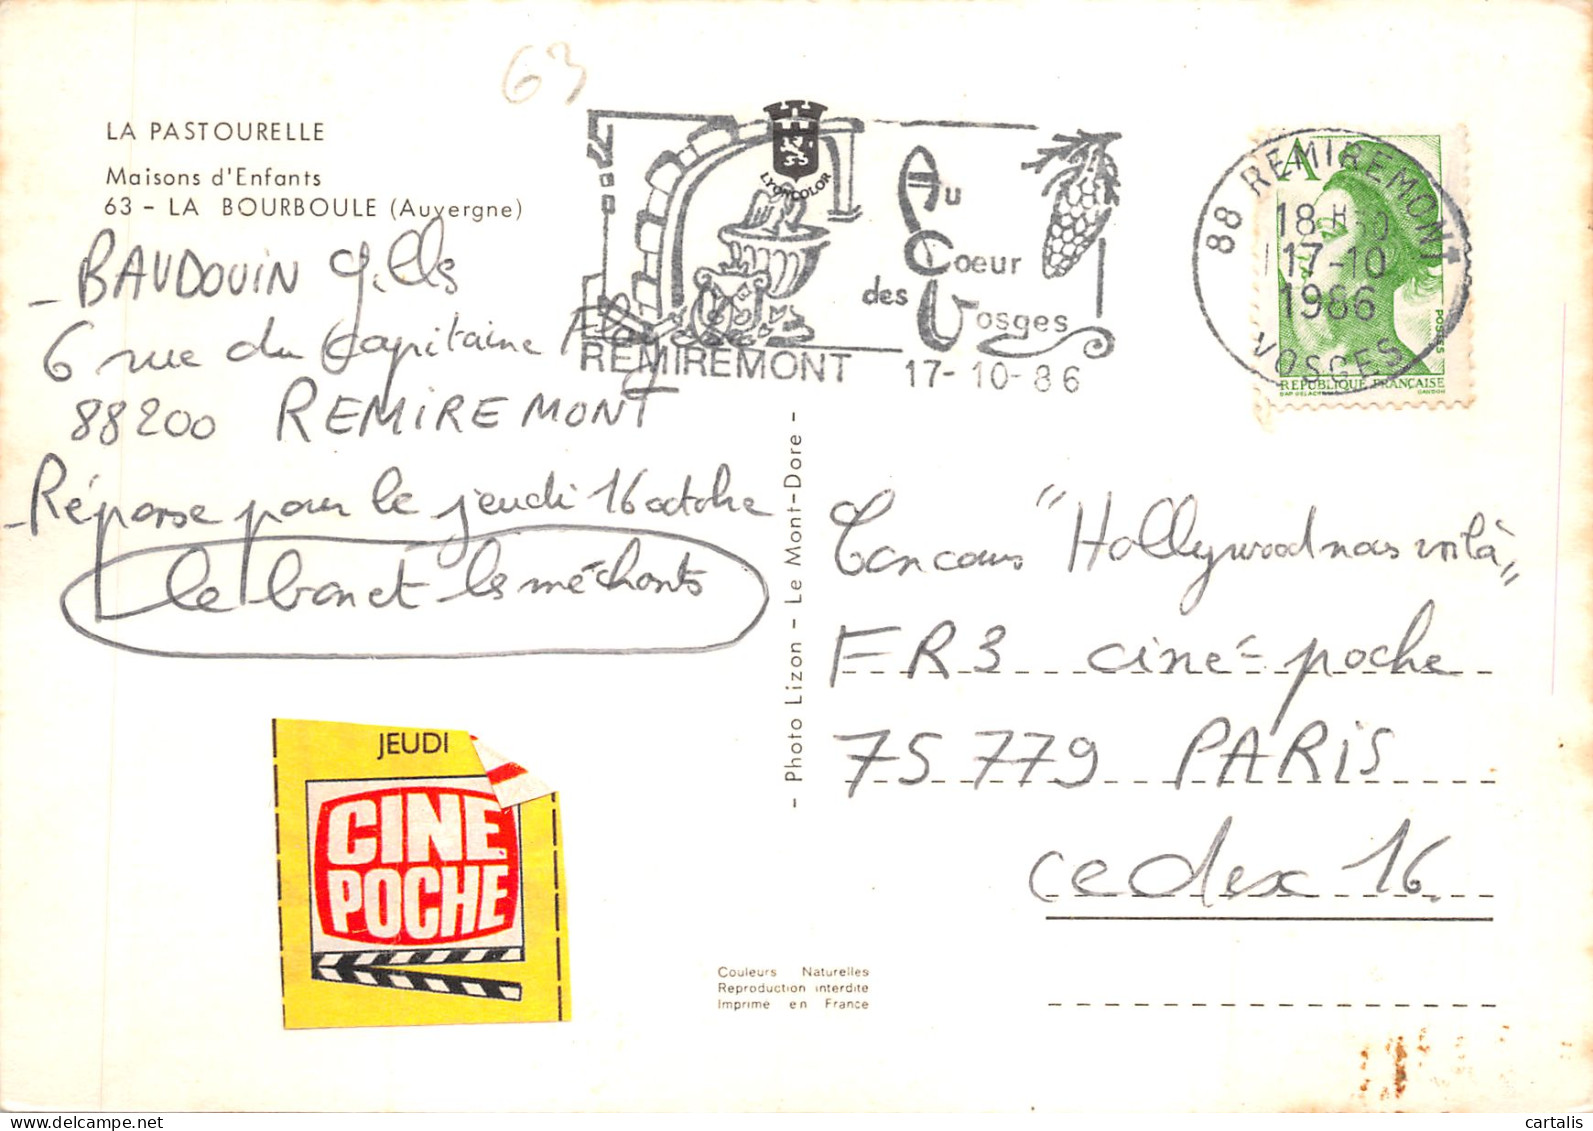 63
LA PASTOURELLE
Maisons d'Enfants
63 - LA BOURBOULE (Auvergne)
- BAUDOUIN Gilles
6 rue du Capitaine
88200 REMIREMONT
- Réponse pour le jeudi 16 octobre
le bon et les méchants
JEUDI
CINE
POCHE
LYONCOLOR
Au
Coeur
des
Vosges
REMIREMONT 17-10-86
88 REMIREMONT
18 H30
17-10
1986
VOSGES
A
POSTES
REPUBLIQUE FRANÇAISE
DAP. DELACROIX GANDON
- Photo Lizon - Le Mont-Dore -
Concours "Hollywood nous voilà"
FR3 ciné-poche
75779 PARIS
cedex 16.
Couleurs Naturelles
Reproduction interdite
Imprimé en France
cartalis
www.delcampe.net